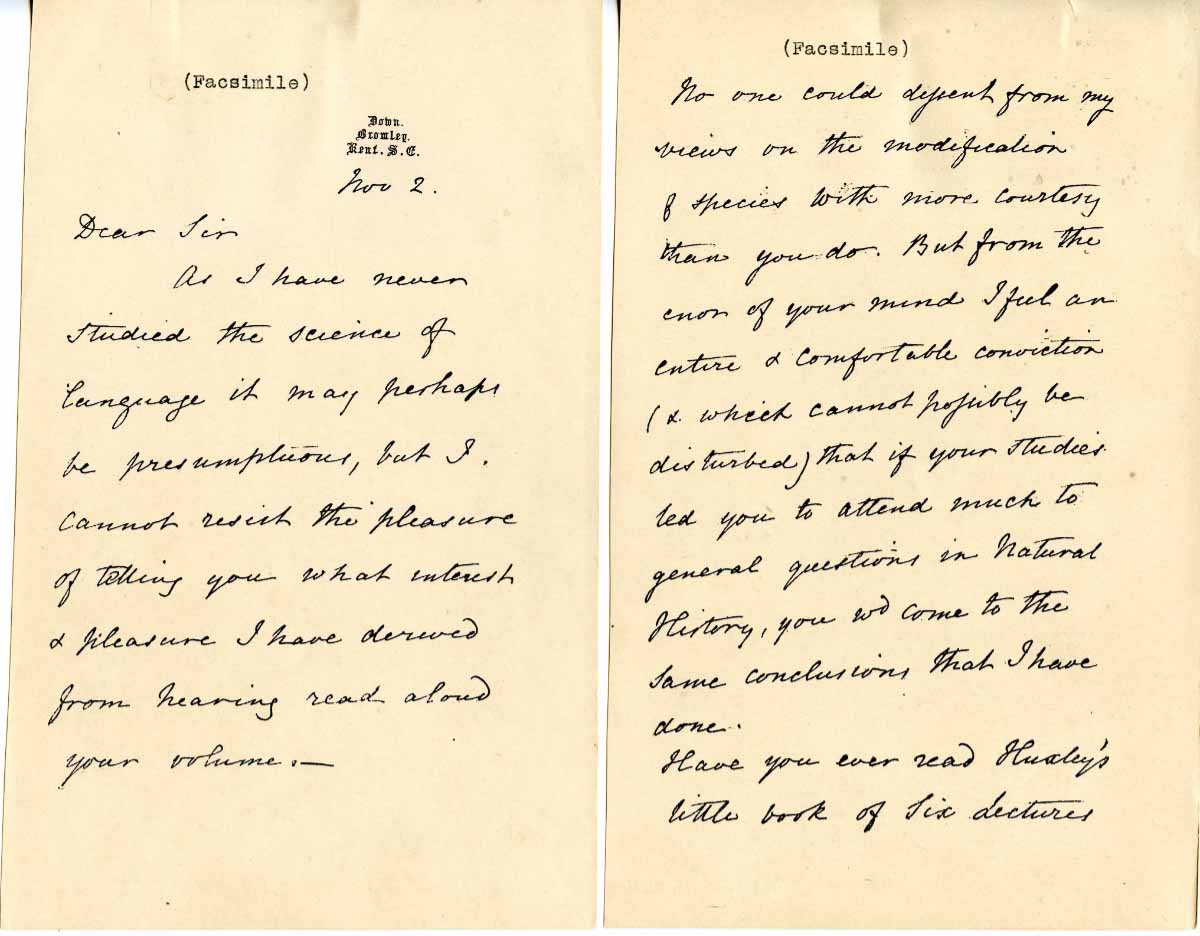 (Facsimile)
Down.
Bromley.
Kent. S.E.
Nov 2.
Dear Sir
As I have never
studied the science of
language it may perhaps
be presumptuous, but I.
cannot resist the pleasure
of telling you what interest
& pleasure I have derived
from hearing read aloud
your volume.—
(Facsimile)
No one could dissent from my
views on the modification
of species with more courtesy
than you do. But from the
of your mind I feel an
entire & comfortable conviction
(& which cannot possibly be
disturbed) that if your studies
led you to attend much to
general questions in Natural
History, you wd come to the
same conclusions that I have
done.
Have you ever read Huxley's
little book of Six Lectures